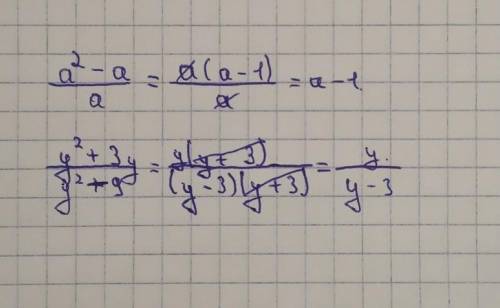 a² - a / a = a(a - 1) / a = a - 1
y² + 3y / y² - 9 = y(y + 3) / (y - 3)(y + 3) = y / y - 3